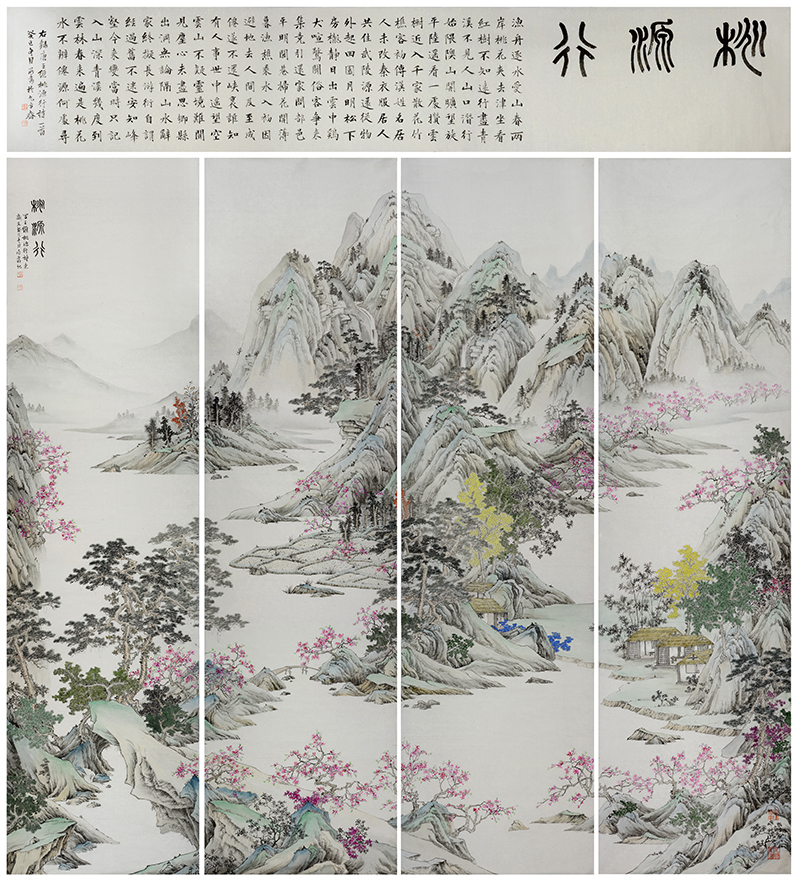 桃源行
漁舟逐水愛山春兩
岸桃花夾去津坐看
紅樹不知遠行盡青
溪不見人山口潛行
始隈隩山開曠望旋
平陸遙看一處攢雲
樹近入千家散花竹
樵客初傳漢姓名居
人未改秦衣服居人
共住武陵源還從物
外起田園月明松下
房櫳靜日出雲中鷄
犬喧驚聞俗客爭來
集競引還家問都邑
平明閭巷掃花開薄
暮漁樵乘水入初因
避地去人間及至成
僊遂不還峽裏誰知
有人事世中遙望空
雲山不疑靈境難聞
見塵心未盡思鄉縣
出洞無論隔山水辭
家終擬長游衍自謂
經過舊不迷安知峰
壑今來變當時只記
入山深青溪幾度到
雲林春來遍是桃花
水不辨僊源何處尋
右錄唐王維桃源行詩一首
桃源行